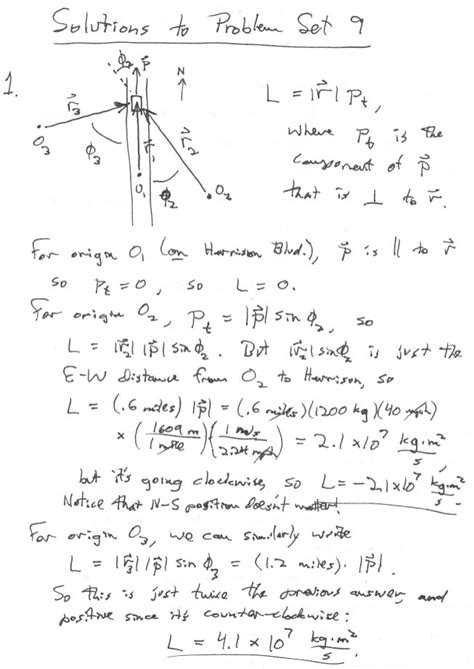 Solutions to Problem Set 9
1.
φ₂ p⃗ N
r⃗₃ r⃗₁ r⃗₂
O₃ φ₃ O₁ φ₂ O₂
L = |r⃗| Pₜ,
where Pₜ is the
component of p⃗
that is ⊥ to r⃗.
For origin O₁ (on Harrison Blvd.), p⃗ is || to r⃗
so Pₜ = 0, so L = 0.
For origin O₂, Pₜ = |p⃗| sin φ₂, so
L = |r⃗₂| |p⃗| sin φ₂. But |r⃗₂| sin φ₂ is just the
E-W distance from O₂ to Harrison, so
L = (.6 miles) |p⃗| = (.6 miles)(1200 kg)(40 mph)
× (1609 m / 1 mile)(1 m/s / 2.24 mph) = 2.1 × 10⁷ kg·m²/s,
but it's going clockwise, so L = -2.1 × 10⁷ kg·m²/s.
Notice that N-S position doesn't matter!
For origin O₃, we can similarly write
L = |r⃗₃| |p⃗| sin φ₃ = (1.2 miles) · |p⃗|.
So this is just twice the previous answer, and
positive since it's counter-clockwise:
L = 4.1 × 10⁷ kg·m²/s.